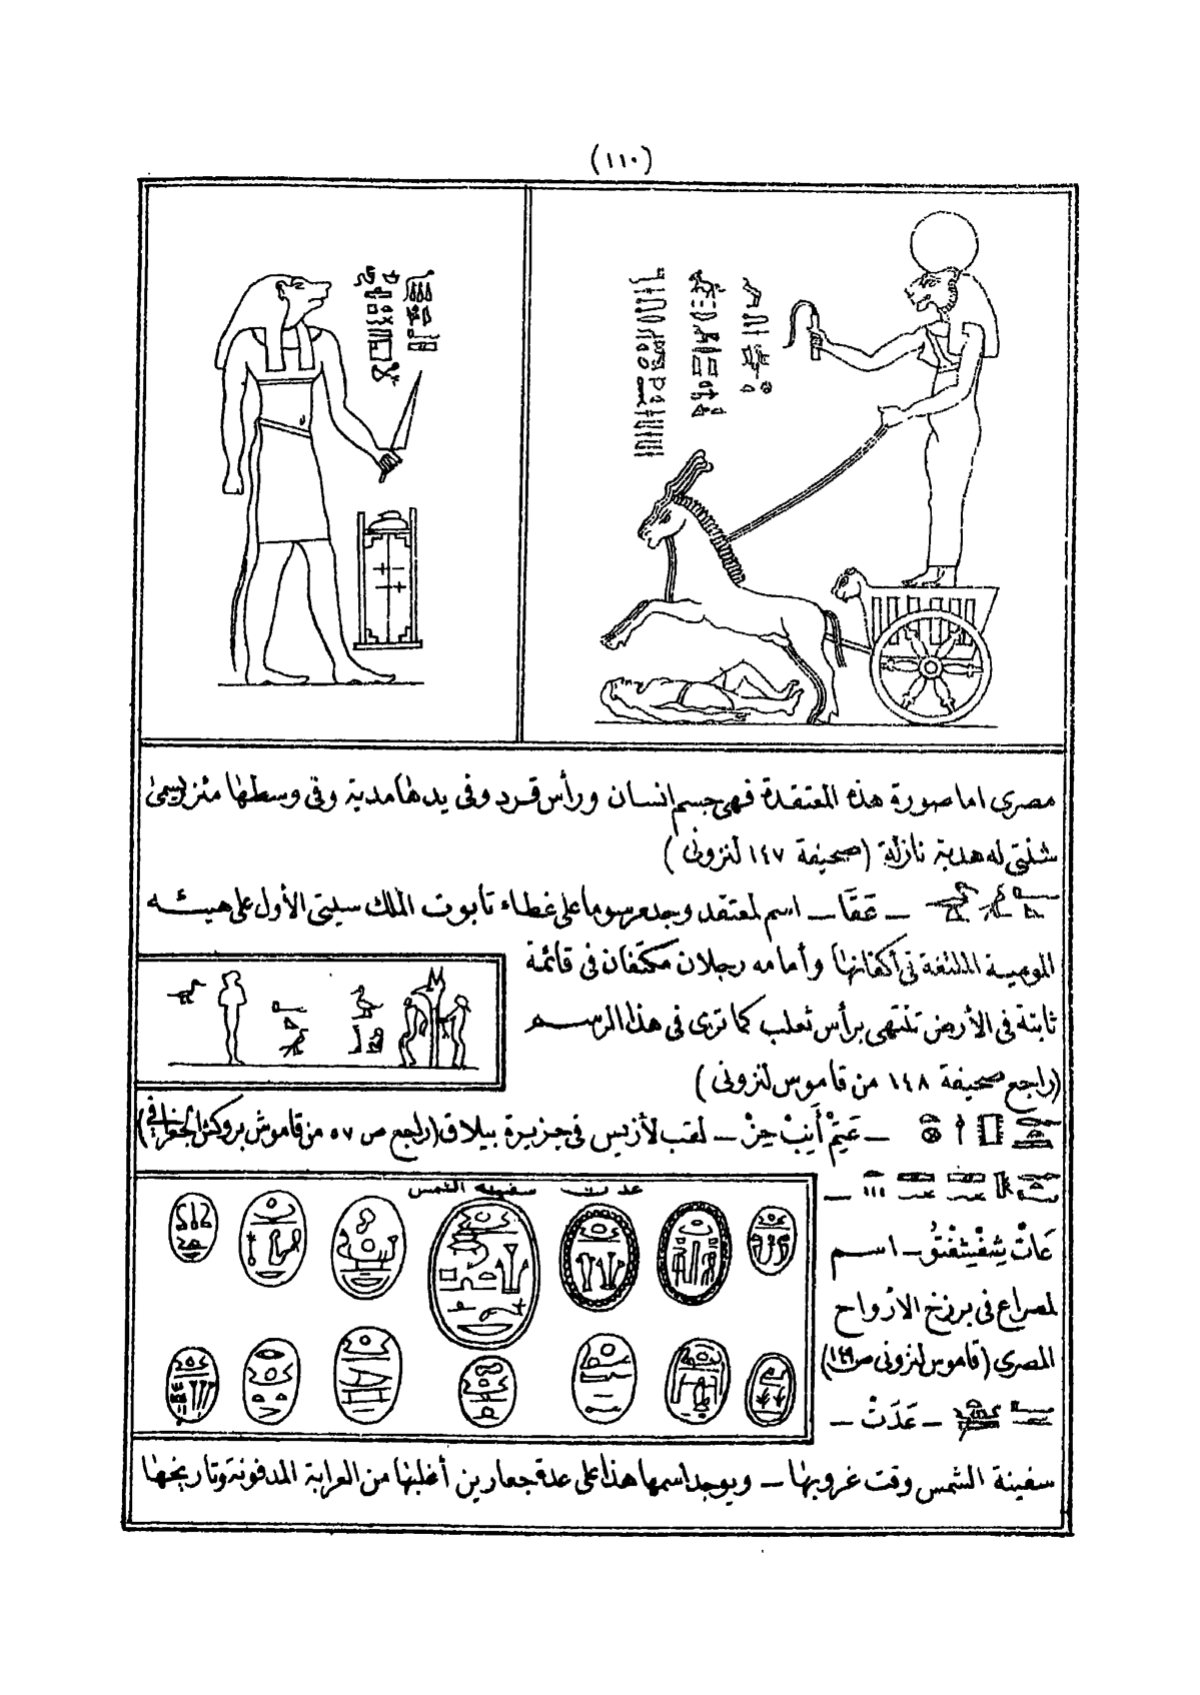 (١١٠)
مصرى اما صورة هذه المعتقدة فهى جسم انسان ورأس قرد وفى يدها مدية وفى وسطها مئزر يسمى
شنتى له هدبة نازلة (صحيفة ١٤٧ لنزونى)
ـ عَقَا ـ اسم لمعتقد وجد مرسوما على غطاء تابوت الملك سيتى الأول على هيئه
المومية الملتفة فى أكفانها وأمامه رجلان مكتفان فى قائمة
ثابتة فى الأرض تنتهى برأس ثعلب كما ترى فى هذا الرسم
(راجع صحيفة ١٤٨ من قاموس لنزونى)
ـ لقب لأزيس فى جزيرة بيلاق (راجع ص ٥٧ من قاموس بروكش الجغرافى)
عدت سفينة الشمس
ـ اسم
لمصراع فى برزخ الارواح
المصرى (قاموس لنزونى ص ١٤٩)
ـ عَدَتْ ـ
سفينة الشمس وقت غروبها ـ ويوجد اسمها هذا على عدة جعارين أغلبها من العرابة المدفونة وتاريخها